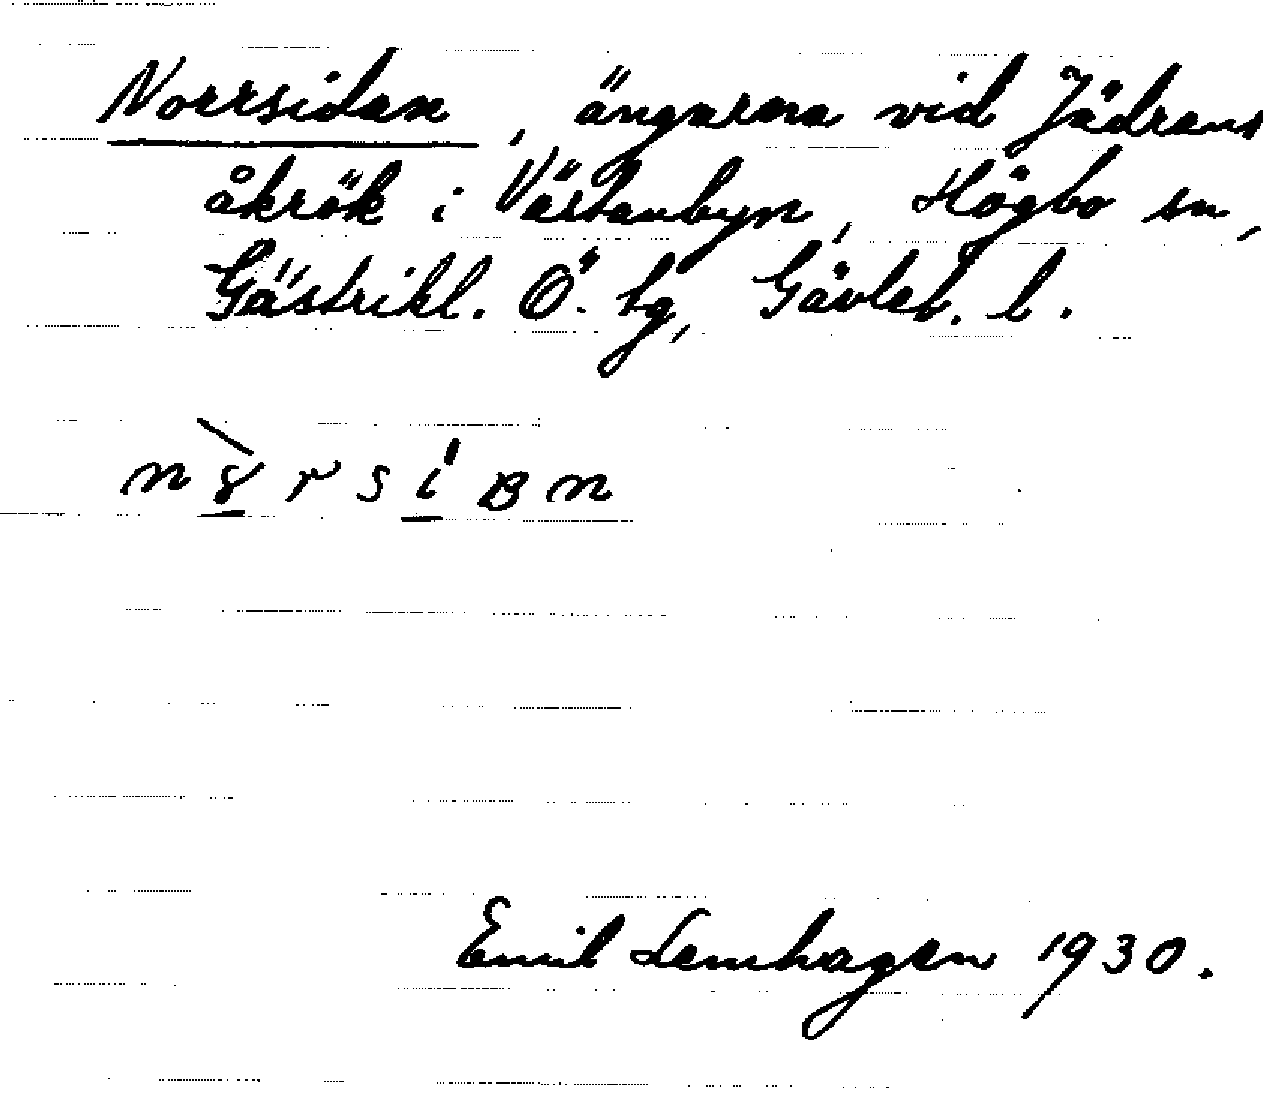 Norrsidan, ängarna vid Jädrans
åkrök i Västanbyn, Högbo sn,
Gästrikl. Ö. tg, Gävleb. l.
Emil Lemhagen 1930.